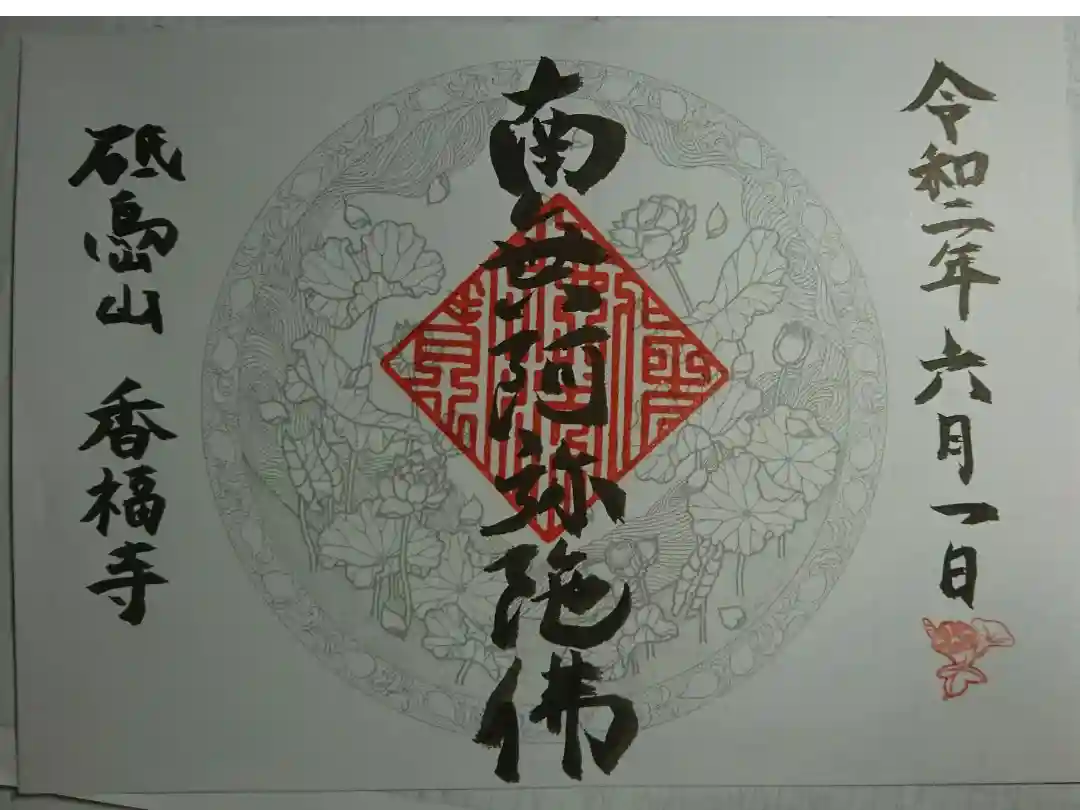 令和二年六月一日
南無阿弥陀佛
砥島山 香福寺